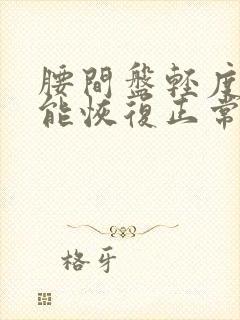 腰間盤輕度
能恢復正常
格牙